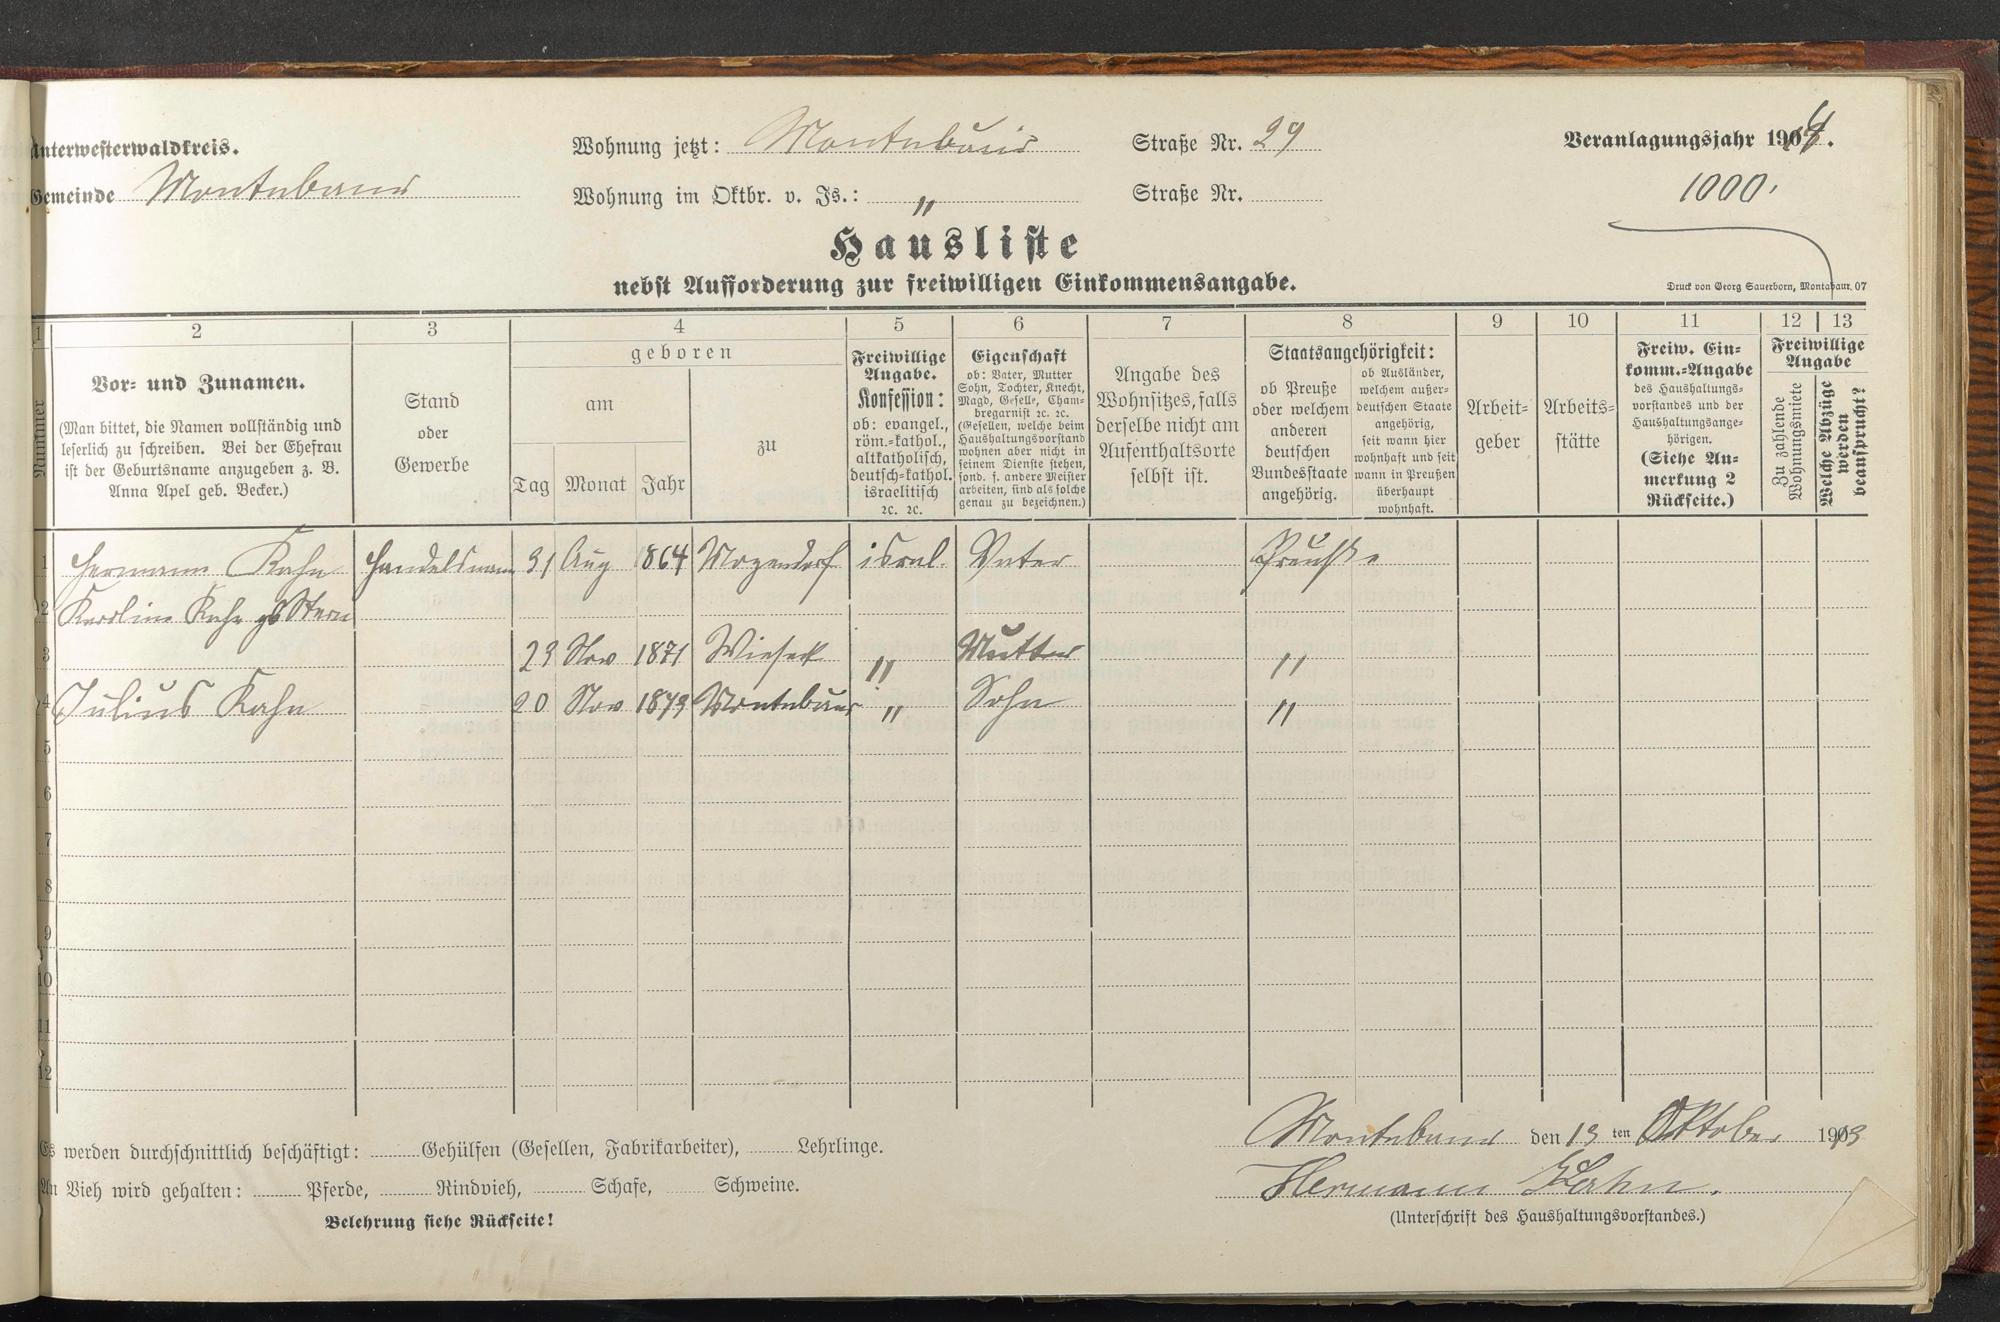 Unterwesterwaldkreis.
Gemeinde Montabaur
Wohnung jetzt: Montabaur Straße Nr. 29
Wohnung im Oktbr. v. Js.: " Straße Nr.
Veranlagungsjahr 1904.
1000.
Hausliste
nebst Aufforderung zur freiwilligen Einkommensangabe.
Druck von Georg Sauerborn, Montabaur. 07
1 2 3 4 5 6 7 8 9 10 11 12 13
Nummer
Vor- und Zunamen.
(Man bittet, die Namen vollständig und
leserlich zu schreiben. Bei der Ehefrau
ist der Geburtsname anzugeben z. B.
Anna Apel geb. Becker.)
Stand
oder
Gewerbe
geboren
am
Tag Monat Jahr
zu
Freiwillige
Angabe.
Konfession:
ob: evangel.,
röm.-kathol.,
altkatholisch,
deutsch-kathol.
israelitisch
ꝛc. ꝛc.
Eigenschaft
ob: Vater, Mutter
Sohn, Tochter, Knecht,
Magd, Geselle, Cham-
bregarnist ꝛc. ꝛc.
(Gesellen, welche beim
Haushaltungsvorstand
wohnen aber nicht in
seinem Dienste stehen,
sond. f. andere Meister
arbeiten, sind als solche
genau zu bezeichnen.)
Angabe des
Wohnsitzes, falls
derselbe nicht am
Aufenthaltsorte
selbst ist.
Staatsangehörigkeit:
ob Preuße
oder welchem
anderen
deutschen
Bundesstaate
angehörig.
ob Ausländer,
welchem außer-
deutschen Staate
angehörig,
seit wann hier
wohnhaft und seit
wann in Preußen
überhaupt
wohnhaft.
Arbeit-
geber
Arbeits-
stätte
Freiw. Ein-
komm.-Angabe
des Haushaltungs-
vorstandes und der
Haushaltungsange-
hörigen.
(Siehe An-
merkung 2
Rückseite.)
Freiwillige
Angabe
Zu zahlende
Wohnungsmiete
Welche Abzüge
werden
beansprucht?
1 Hermann Kahn Handelsmann 31 Aug 1864 isral. Vater Preuße
2 Karoline Kahn gb Stern
3 23 Nov 1871 Wieseck " Mutter "
4 Julius Kahn 20 Nov Montabaur " Sohn "
5
6
7
8
9
10
11
12
Es werden durchschnittlich beschäftigt: Gehülfen (Gesellen, Fabrikarbeiter), Lehrlinge.
An Vieh wird gehalten: Pferde, Rindvieh, Schafe, Schweine.
Belehrung siehe Rückseite!
Montabaur den 13 ten Oktober 1913
Hermann Kahn.
(Unterschrift des Haushaltungsvorstandes.)